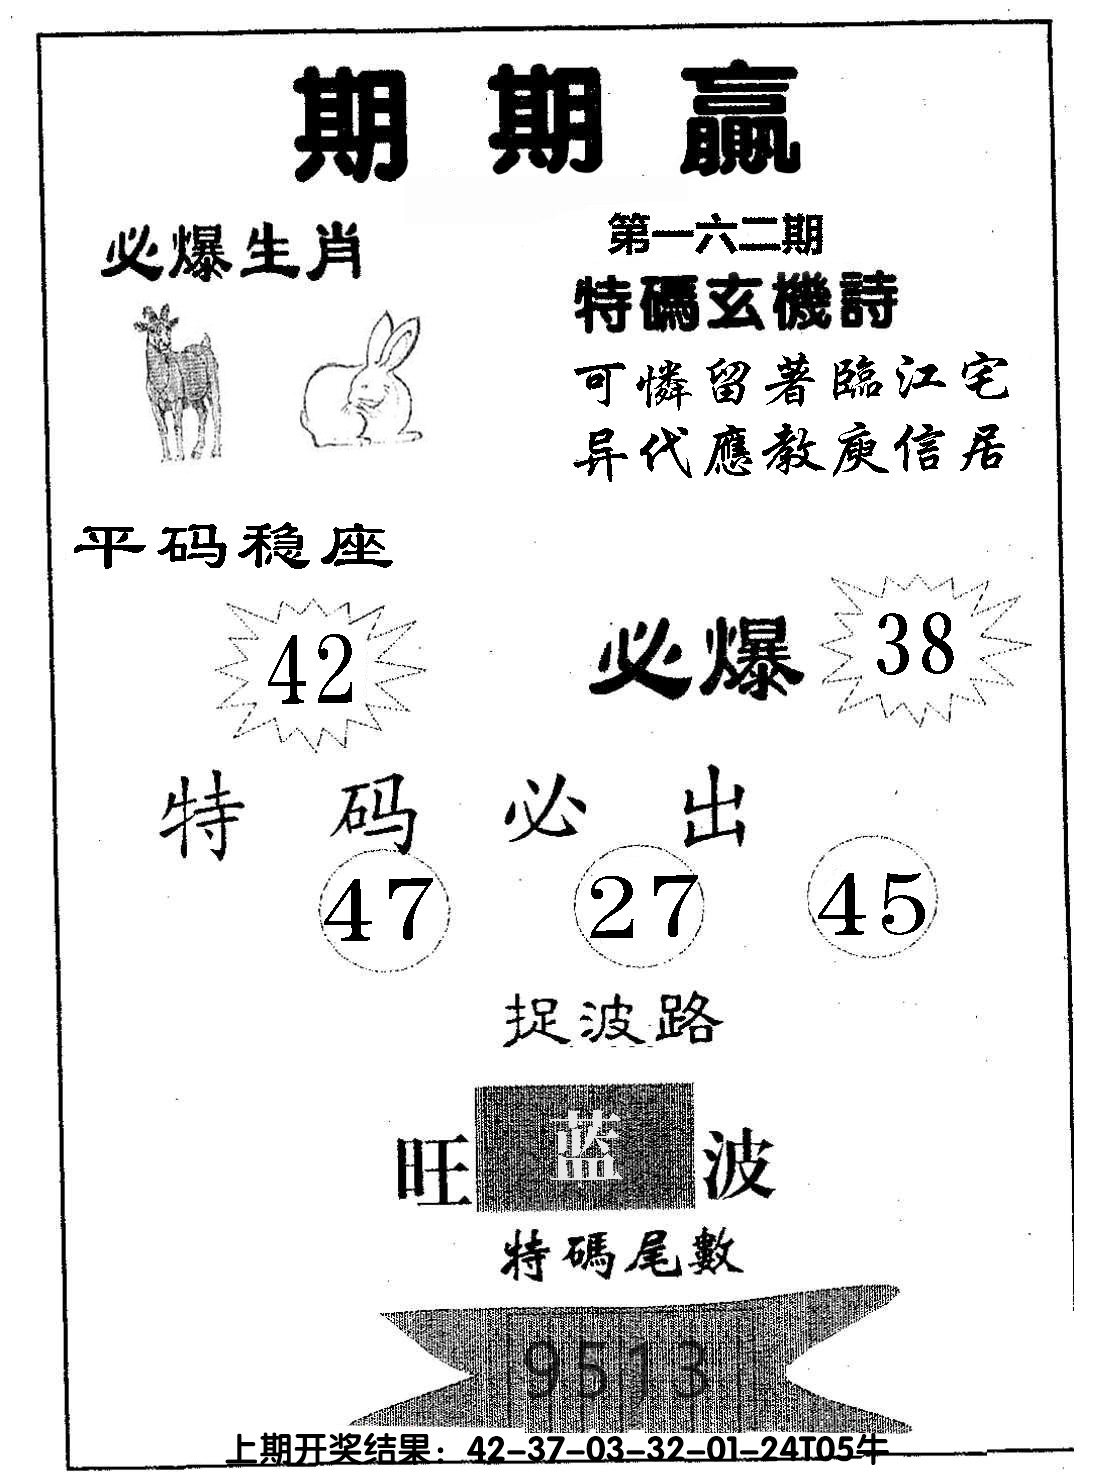 期期贏
必爆生肖
第一六二期
特碼玄機詩
可憐留著臨江宅
异代應教庾信居
平码稳座
42
必爆 38
特码必出
47 27 45
捉波路
旺 蓝 波
特碼尾數
9513
上期开奖结果：42-37-03-32-01-24T05牛